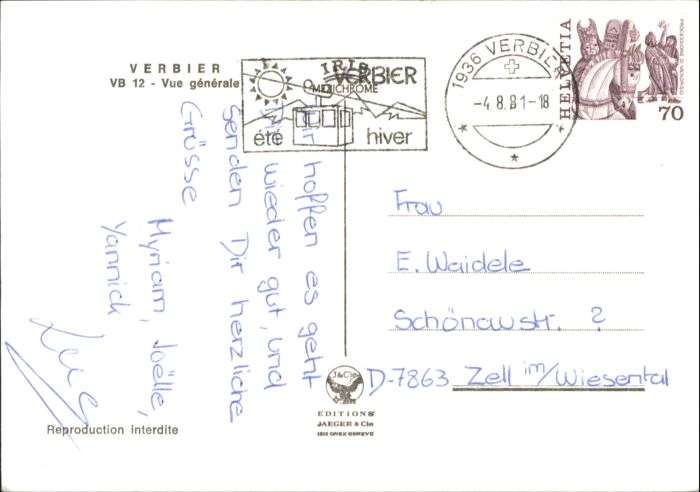 VERBIER
VB 12 - Vue générale
IRIS
MEXICHROME
VERBIER
été hiver
1936 VERBIER
-4.8.81-18
HELVETIA
70
Wir hoffen es geht
Dir wieder gut, und
senden Dir herzliche
Grüsse
Myriam, Joëlle,
Yannick
Frau
E. Waidele
Schönaustr. ?
D-7863 Zell im/Wiesental
J&Cie
EDITIONS
JAEGER & Cie
1213 ONEX-GENÈVE
Reproduction interdite